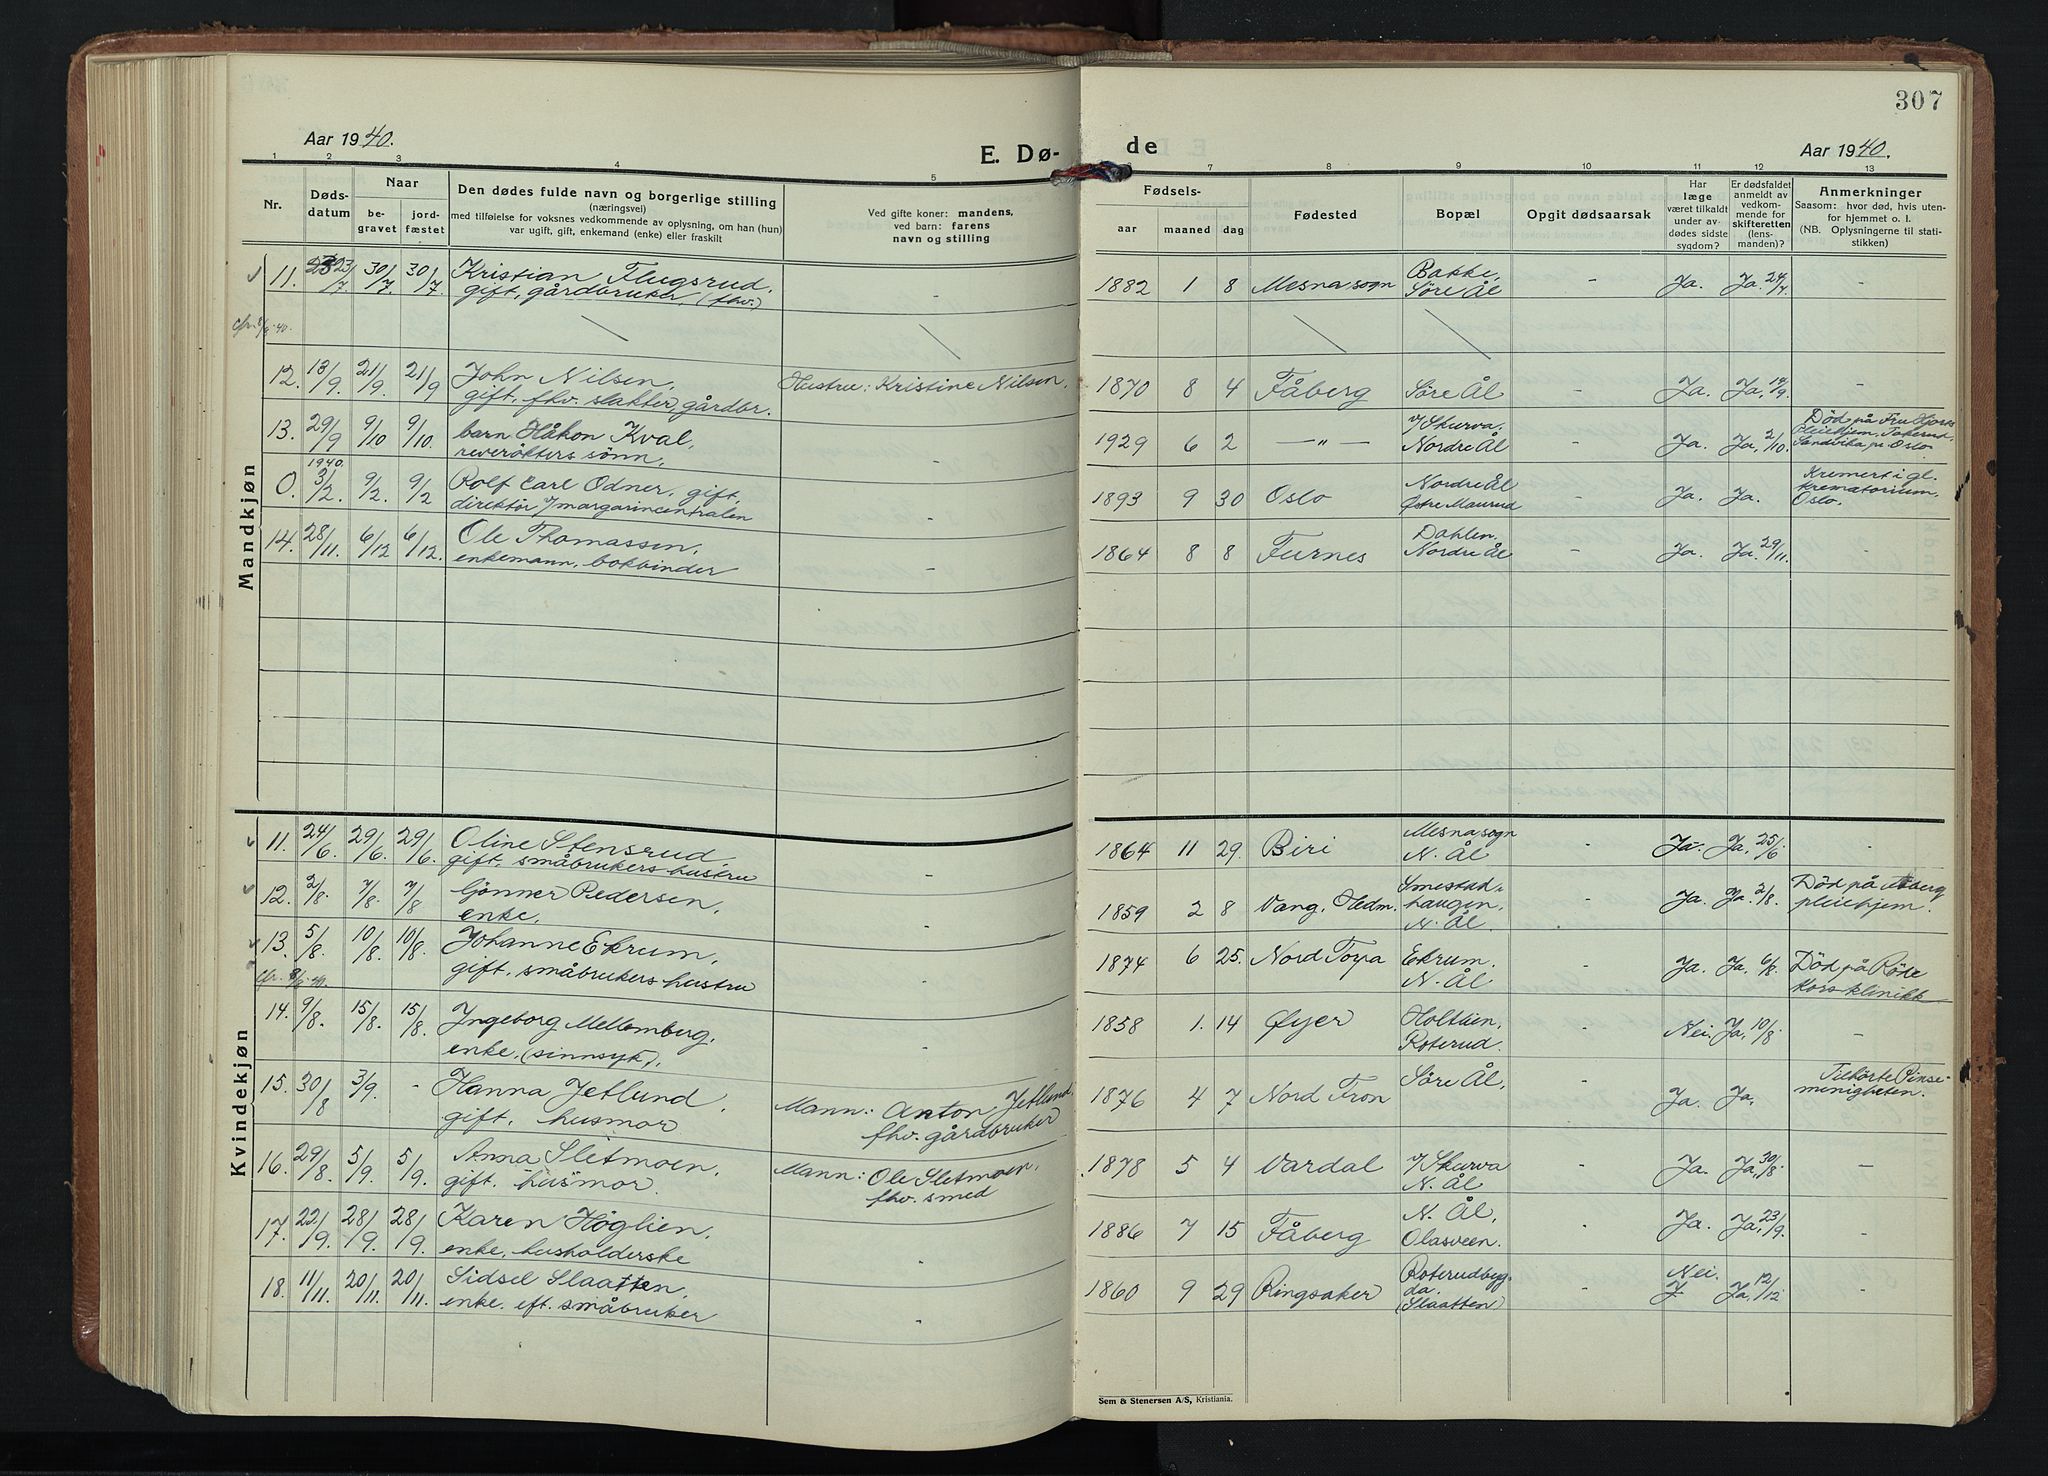 307
Aar 1940.
E. Dø-
de
Aar 1940.
1 2 3 4 5 6 7 8 9 10 11 12 13
Nr.
Døds-
datum
Naar
be-
gravet
jord-
fæstet
Den dødes fulde navn og borgerlige stilling
(næringsvei)
med tilføielse for voksnes vedkommende av oplysning, om han (hun)
var ugift, gift, enkemand (enke) eller fraskilt
Ved gifte koner: mandens,
ved barn: farens
navn og stilling
Fødsels-
aar maaned dag
Fødested
Bopæl
Opgit dødsaarsak
Har
læge
været tilkaldt
under av-
dødes sidste
sygdom?
Er dødsfaldet
anmeldt av
vedkom-
mende for
skifteretten
(lens-
manden)?
Anmerkninger
Saasom: hvor død, hvis uten-
for hjemmet o. l.
(NB. Oplysningerne til stati-
stikken)
Mandkjøn
11. 23/7 30/7 30/7 Kristian Flugsrud, - 1882 1 8 Mesna sogn Bakke, - Ja. Ja. 24/7 -
gift, gårdbruker (fhv.) Söre Ål
cfr. 8/6-40.
12. 13/9 21/9 21/9 John Nilsen, Hustru: Kristine Nilsen, 1870 8 4 Fåberg Söre Ål - Ja. Ja, 14/9 -
gift, fhv. slakter, gårdbr.
13. 29/9 9/10 9/10. barn Håkon Kval, - 1929 6 2 —„— V/ Skurva, - Ja. Ja, 2/10. Död på Fru Hjorts
reverökters sönn, Nordre Ål Pleiehjem,
Sandvika pr. Oslo
0. 1940. 3/2. 9/2. 9/2 Rolf Carl Odner, gift, - 1893 9 30 Oslo Nordre Ål - Ja. Ja. Kremert i gl.
direktör v/ margarincentralen Østre Maurud krematorium,
Oslo.
14. 28/11. 6/12 6/12. Ole Thomassen, - 1864 8 8 Furnes Dahlen, - Ja. Ja. 29/11. -
enkemann, bokbinder Nordre Ål
Kvindekjøn
11. 24/6. 29/6. 29/6. Oline Stensrud - 1864 11 29. Biri Mesna sogn - Ja. Ja, 25/6 -
gift, småbrukers hustru N. Ål
12. 2/8. 7/8. 7/8 Gönner Pedersen, - 1859 2 8 Vang, Hedm. Smestad- - Ja. Ja. 2/8. Död på Fåberg
enke, haugen, pleiehjem.
N. Ål
13. 5/8. 10/8. 10/8. Johanne Ekrum, - 1874 6 25. Nord Torpa Ekrum. - Ja. Ja. 6/8. Död på Röde
cfr. 8/6-40. gift, småbrukers hustru N. Ål Kors klinikk
14. 9/8. 15/8. 15/8. Ingeborg Mellemberg, - 1858 1. 14 Øyer Holtlien, - Nei. Ja, 10/8 -
enke, (sinnsyk), Roterud.
15. 30/8 3/9. - Hanna Jetlund, Mann: Anton Jetlund, 1876 4 7 Nord Fron Söre Ål, - Ja. Ja, Tilhörte Pinse-
gift, husmor fhv. gårdbruker menigheten.
16. 29/8 5/9. 5/9. Anna Sletmoen, Mann: Ole Sletmoen, 1878 5 4 Vardal V/ Skurva - Ja. Ja, 30/8. -
gift, husmor. fhv. smed N. Ål
17. 22/9. 28/9. 28/9. Karen Höglien, - 1886 7 15 Fåberg N. Ål, - Ja. Ja, 23/9. -
enke, husholderske Olasveen.
18. 11/11. 20/11. 20/11. Sidsel Slaatten, - 1860 9 29 Ringsaker Roterudbyg- - Nei. Ja, 12/12 -
enke eft. småbruker da.
(Slaatten)
Sem & Stenersen A/S, Kristiania.